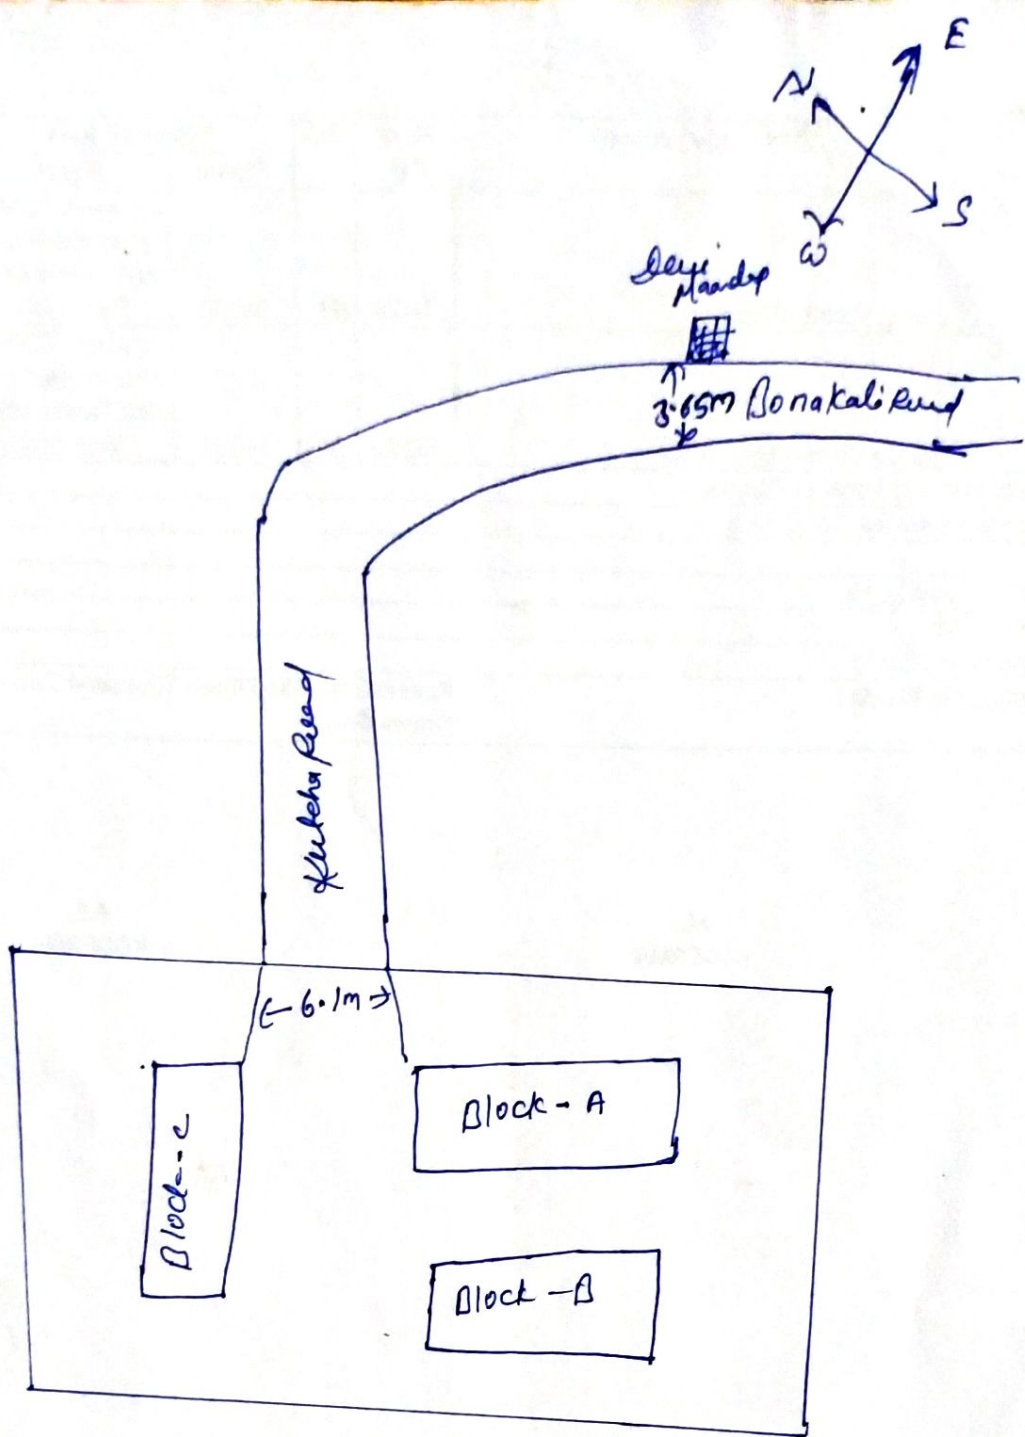 E
N
S
W
Devi
Mandap
3.65m Bonakali Road
Kutcha Road
6.1m
Block - A
Block - C
Block - B